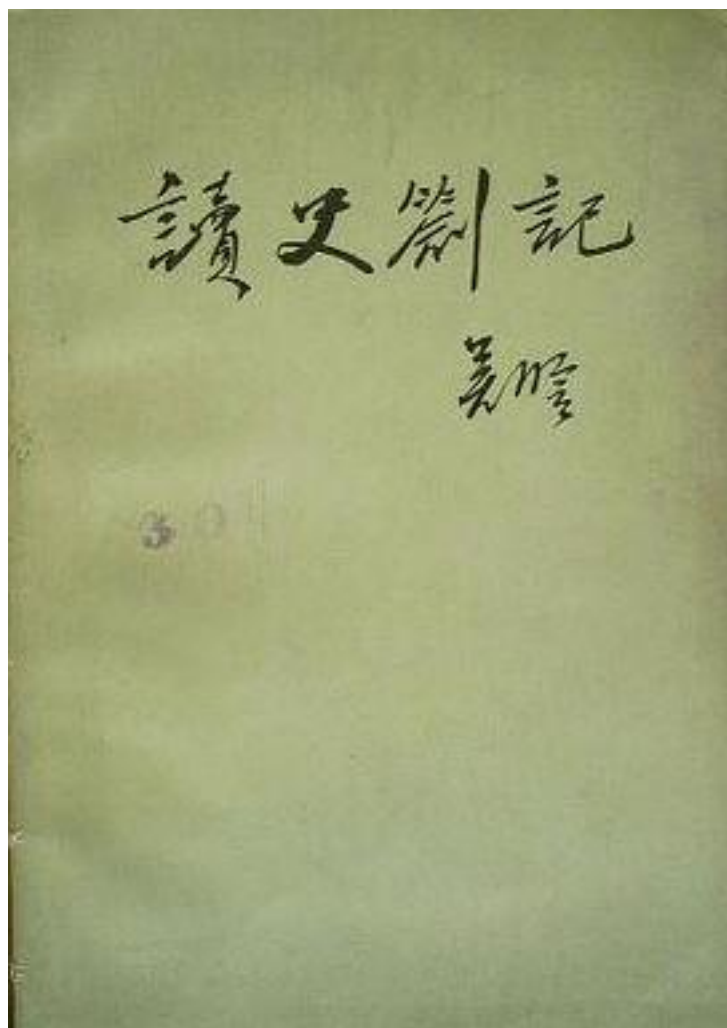 讀史劄記
吴晗
30